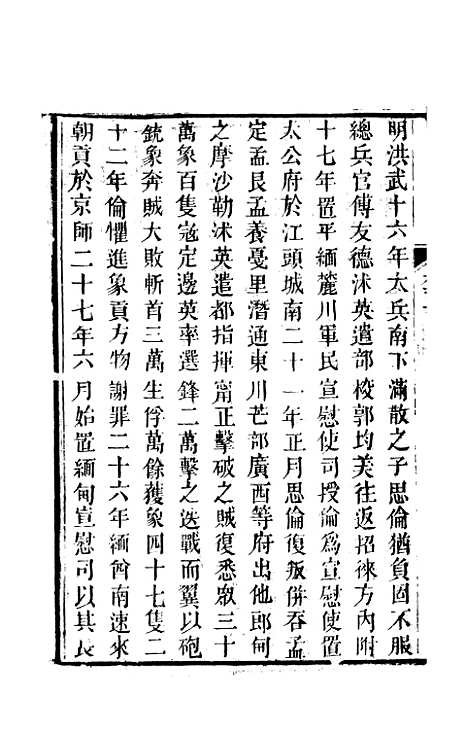 明洪武十六年大兵南下滿散之子思倫猶負固不服
總兵官傅友德沐英遣部校郭均美往返招徠方內附
十七年置平緬麓川軍民宣慰使司授倫爲宣慰使置
太公府於江頭城南二十一年正月思倫復叛併吞孟
定孟艮孟養戞里潛通東川芒部廣西等府出他郎甸
之摩沙勒沐英遣都指揮甯正擊破之賊復悉眾三十
萬象百隻寇定邊英率選鋒二萬擊之迭戰而翼以砲
銃象奔賊大敗斬首三萬生俘萬餘獲象四十七隻二
十二年倫懼進象貢方物謝罪二十六年緬酋南速來
朝貢於京師二十七年六月始置緬甸宣慰司以其長